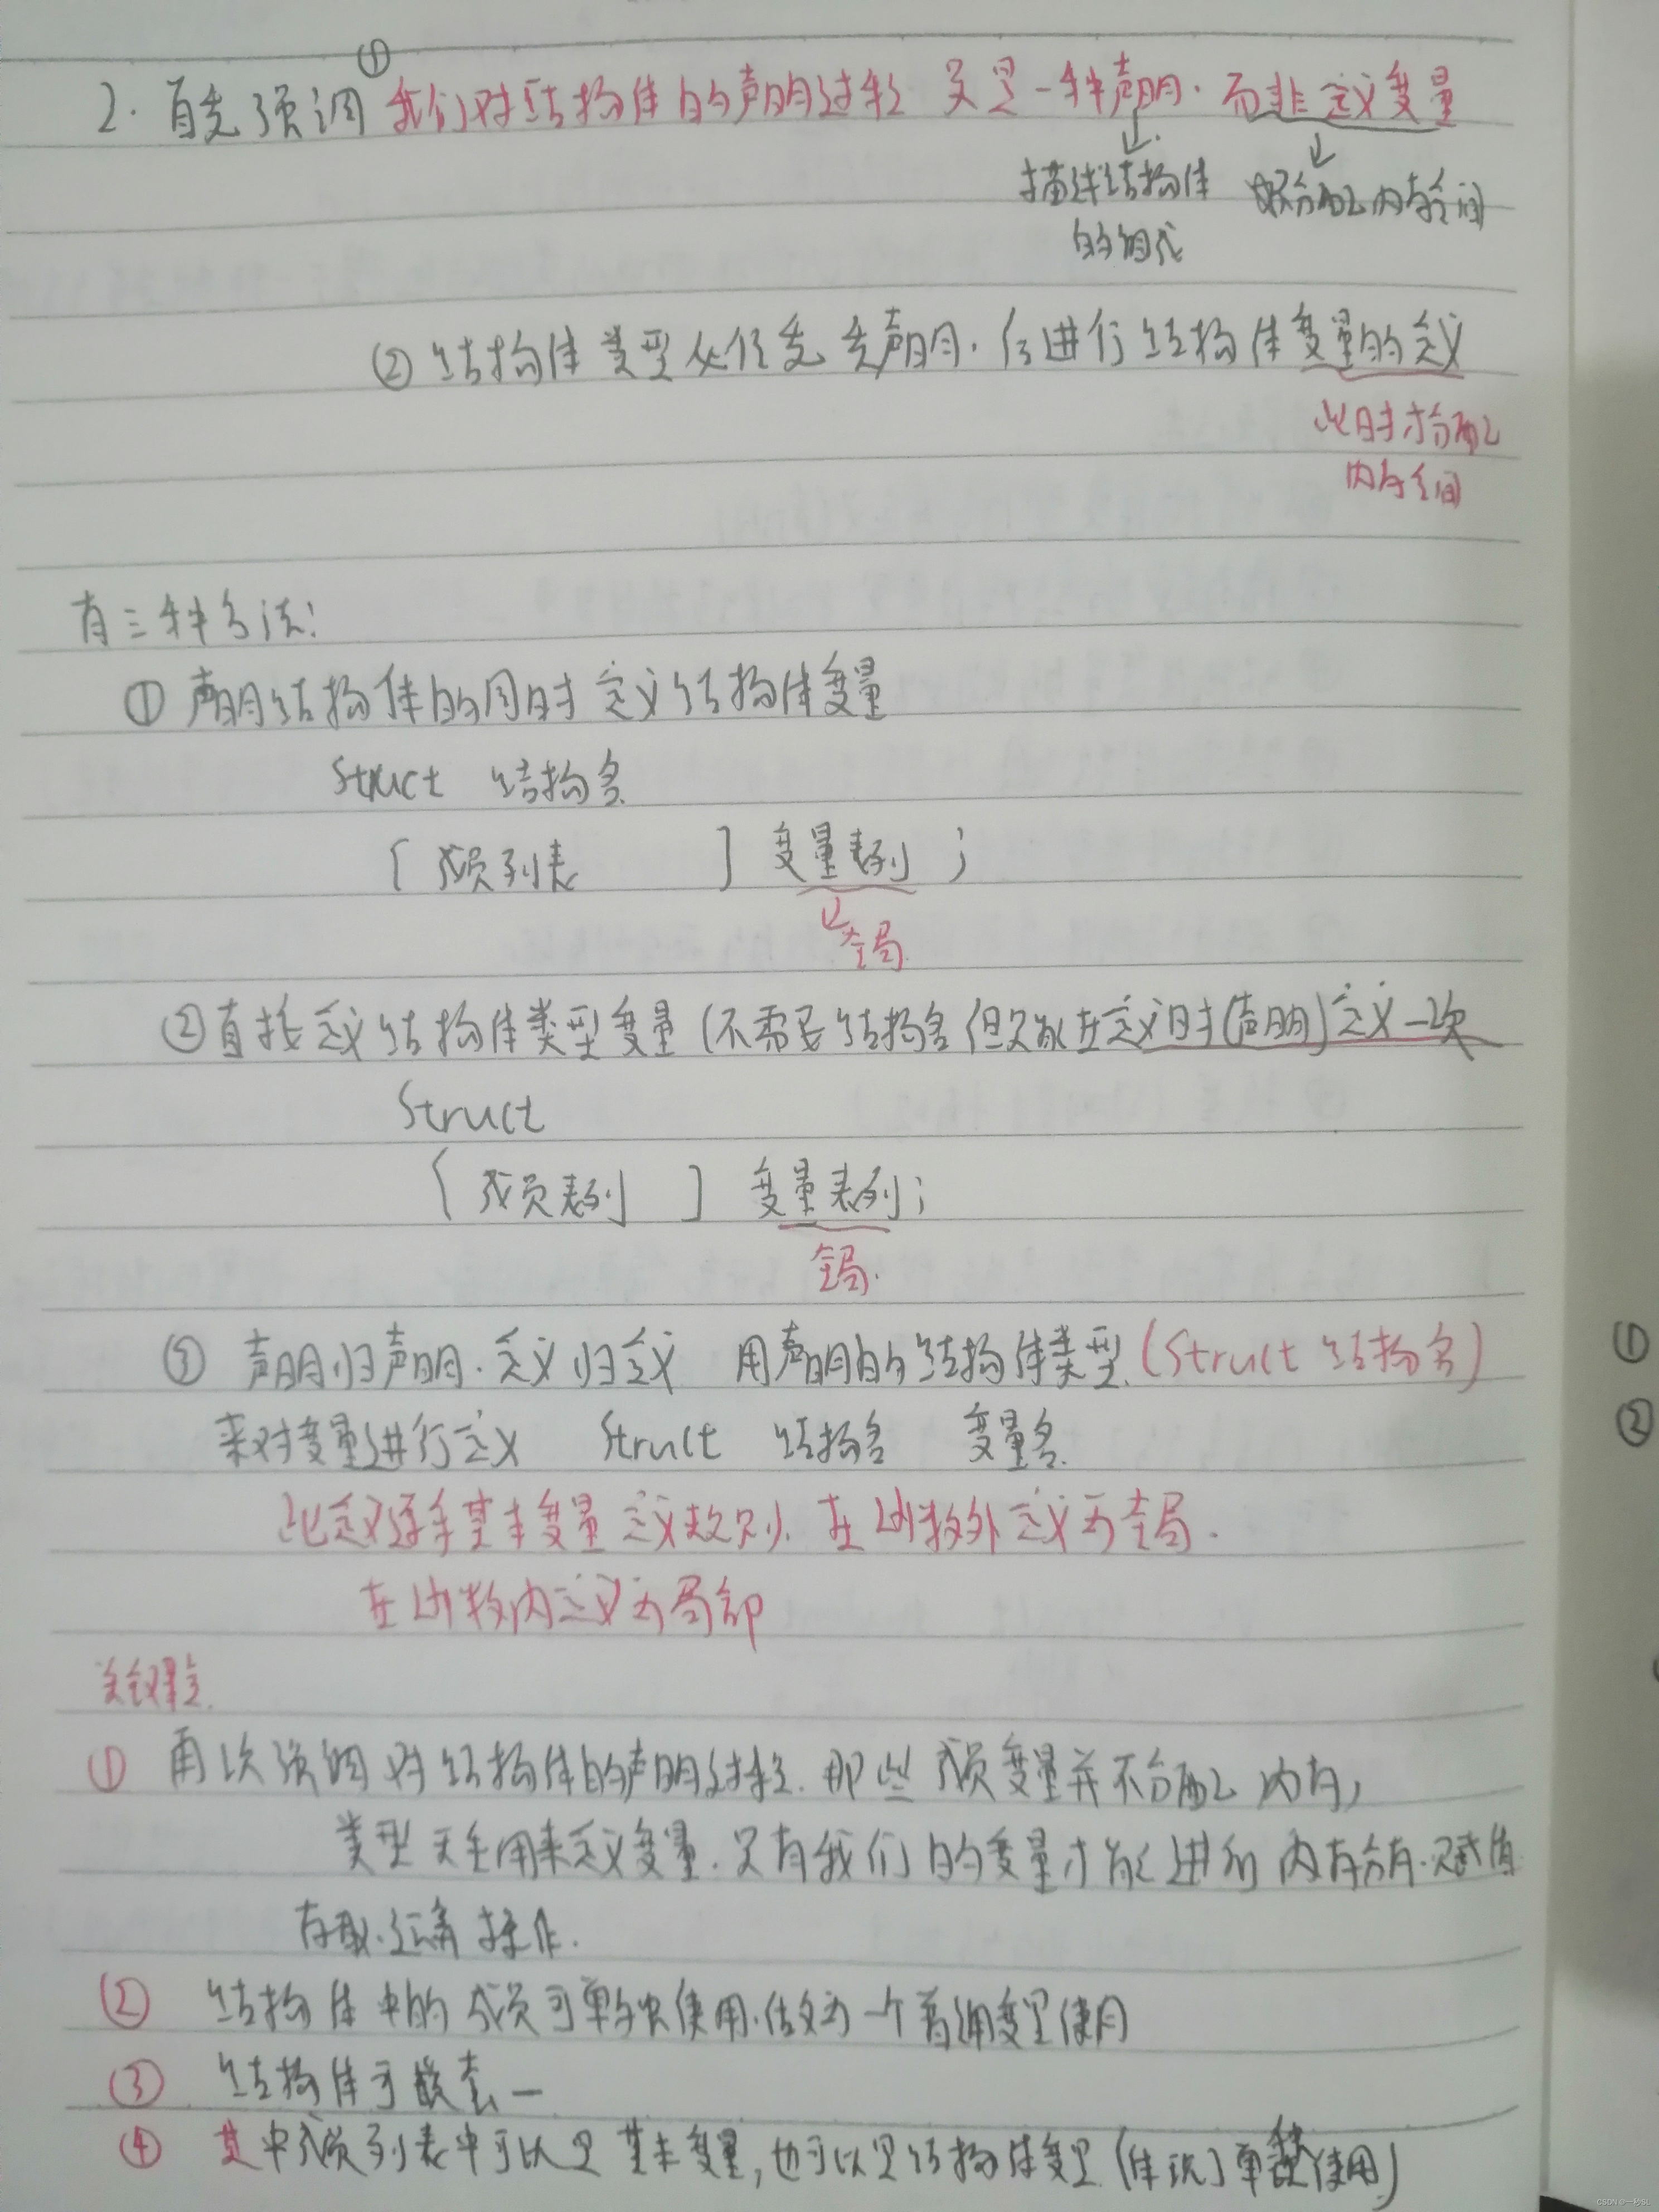 ①
2. 首先强调 我们对结构体的声明过程 只是一种声明. 而非定义变量
描述结构体 分配内存空间
的组成
② 结构体类型必须先声明. 后进行结构体变量的定义
此时才分配
内存空间
有三种方法:
① 声明结构体的同时定义结构体变量
Struct 结构名
{ 成员列表 } 变量表列 ;
全局
②直接定义结构体类型变量 (不需要结构名但只能在定义时(声明)定义一次
Struct
{ 成员表列 } 变量表列;
全局.
③ 声明归声明. 定义归定义 用声明的结构体类型. (Struct 结构名)
①
来对变量进行定义 Struct 结构名 变量名.
②
此定义遵守基本变量定义规则. 在函数外定义为全局.
在函数内定义为局部
关键点.
① 再次强调对结构体的声明过程. 那些成员变量并不分配内存,
类型 是用来定义变量. 只有我们的变量才能进行内存分配.赋值
存取.运算操作.
② 结构体中的成员可单独使用.做为一个普通变量使用
③ 结构体可嵌套一
④ 其中成员列表中可以是基本变量, 也可以是结构体变量 (体现了单独使用)
CSDN @一秒SL